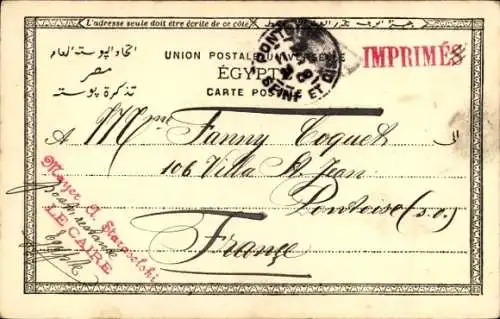 L'adresse seule doit être écrite de ce côté
اتحاد البوستة العام
مصر
تذكرة بوستة
UNION POSTALE UNIVERSELLE
ÉGYPTE
CARTE POSTALE
PONTOISE
SEINE ET OISE
IMPRIMÉS
A Mme Fanny Coquet
الى
106 Villa St Jean
Pontoise (S.O.)
France
Meyer A.
Poste restante
LE CAIRE
Egypte